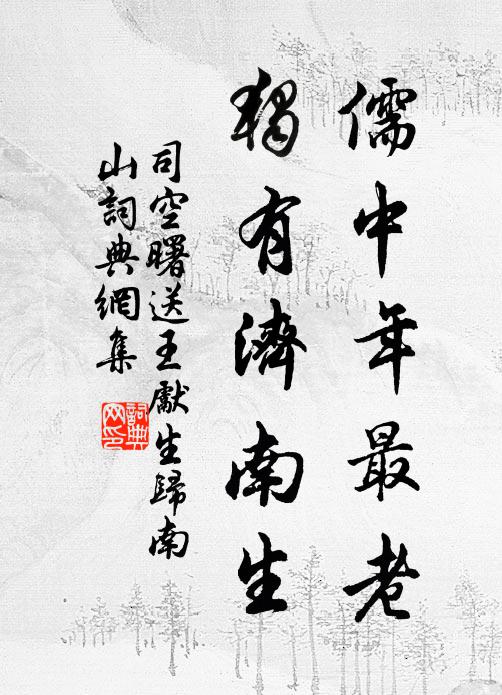 儒中年最老
獨有濟南生
司空曙送王獻生歸南
山詞典網集
詞典
网印